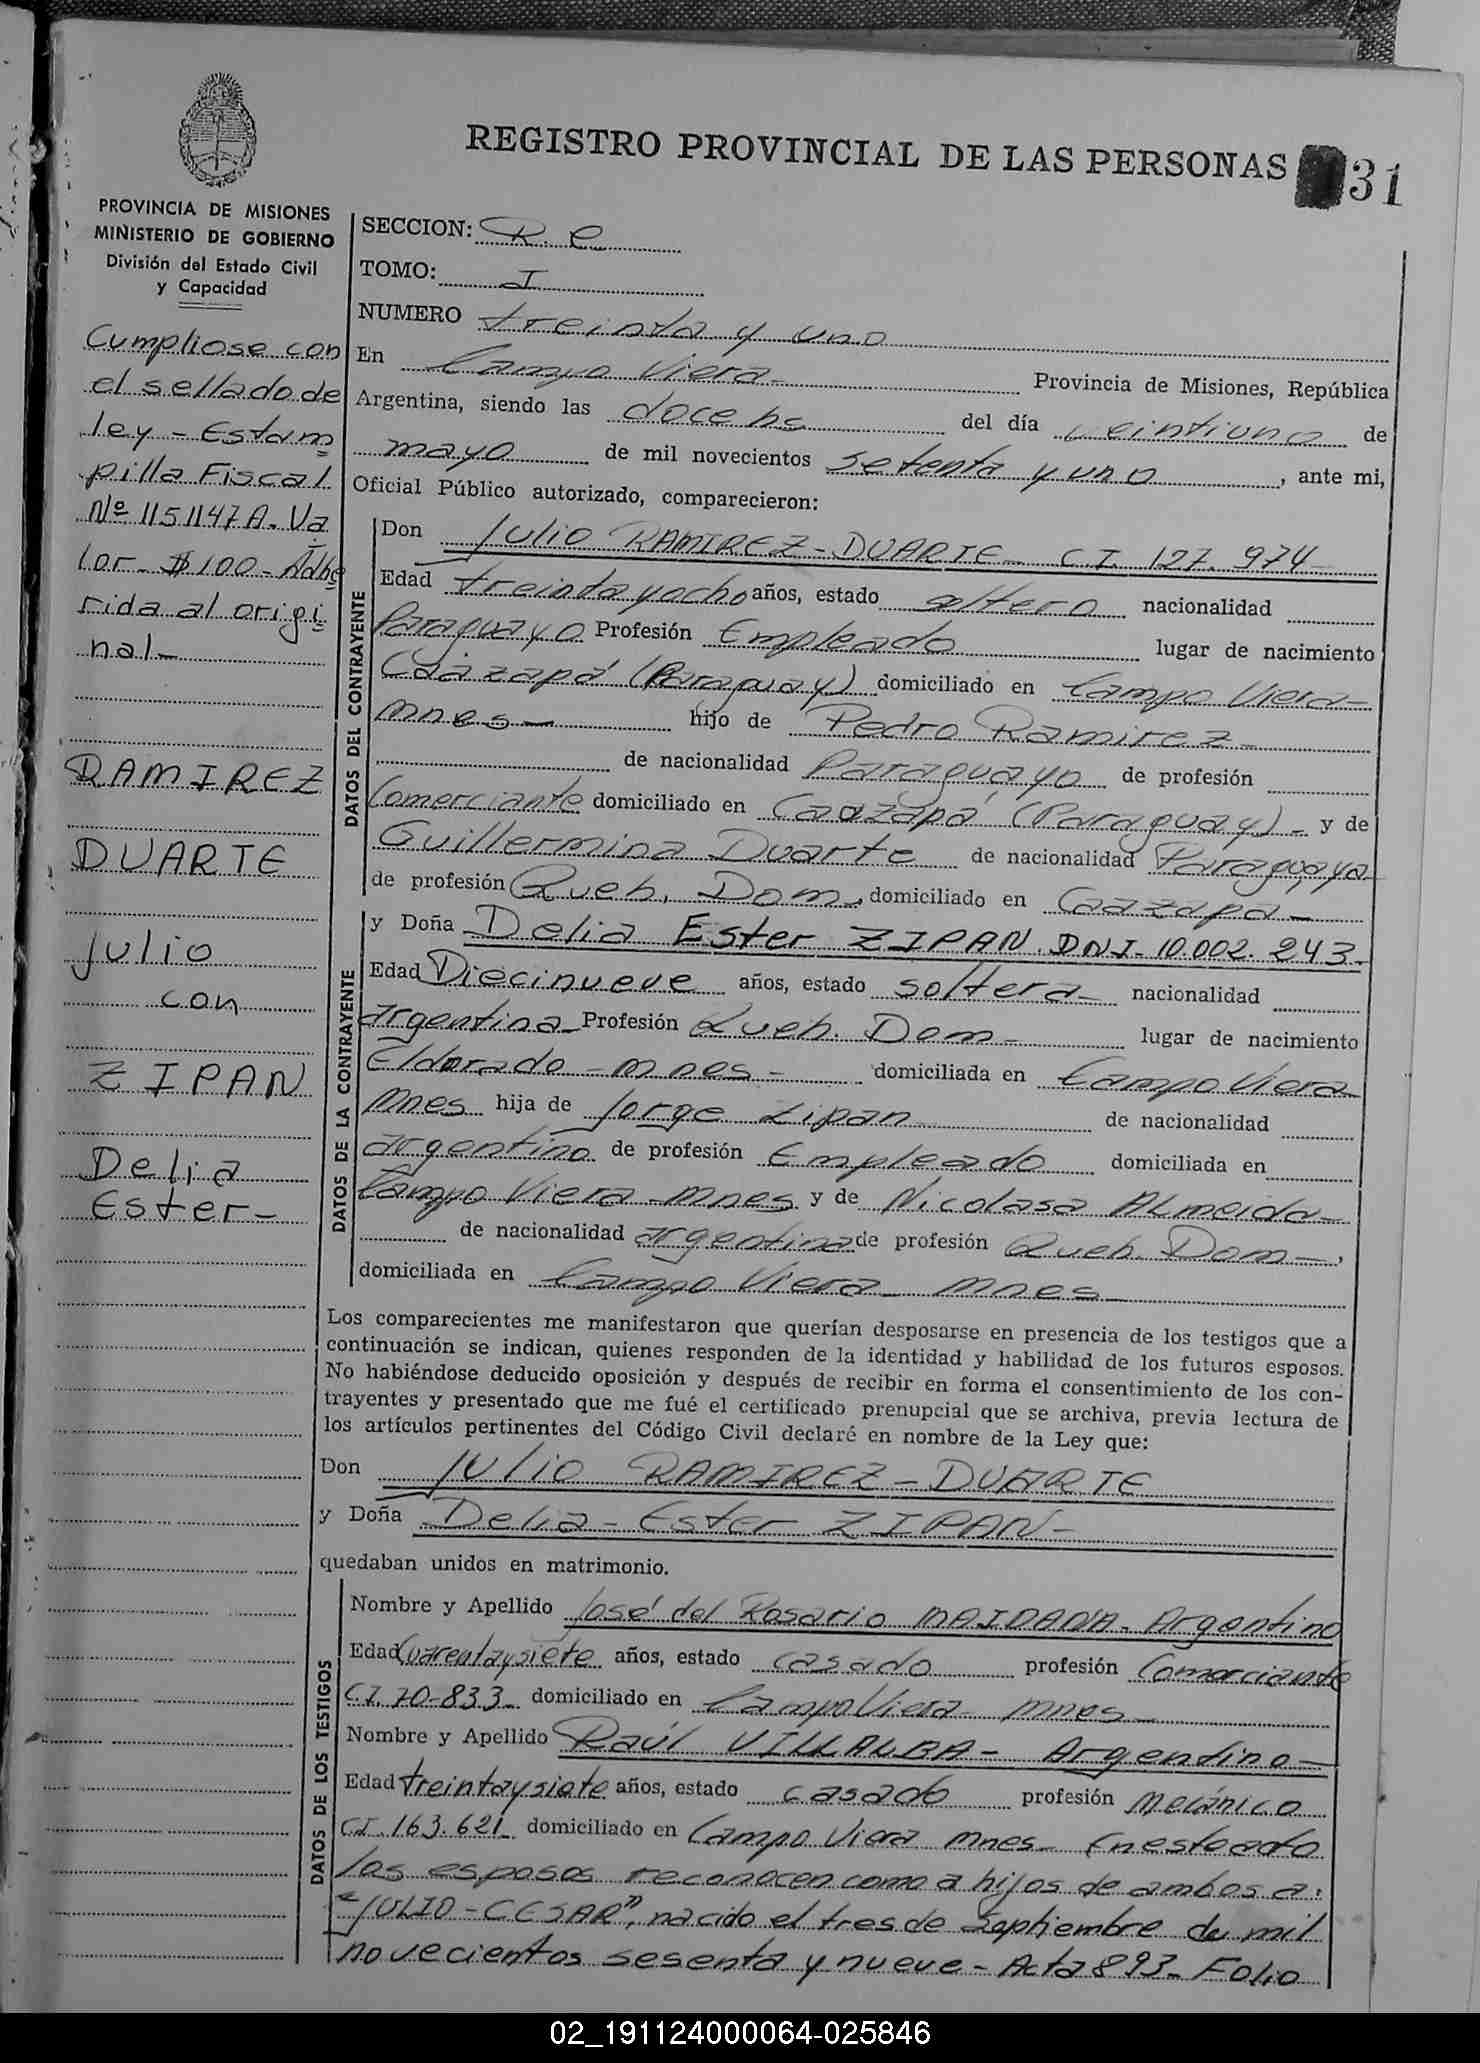 REGISTRO PROVINCIAL DE LAS PERSONAS 31
PROVINCIA DE MISIONES
MINISTERIO DE GOBIERNO
División del Estado Civil
y Capacidad
Cumpliose con
el sellado de
ley - Estam
pilla Fiscal
Nº 1151147 A. Va
lor - $ 100 - Adhe
rida al origi
nal -
RAMIREZ
DUARTE
Julio
con
ZIPAN
Delia
Ester -
SECCION: R. C
TOMO: I
NUMERO treinta y uno
En Campo Viera - Provincia de Misiones, República
Argentina, siendo las doce hs del día veintiuno de
mayo de mil novecientos setenta y uno, ante mi,
Oficial Público autorizado, comparecieron:
DATOS DEL CONTRAYENTE
Don Julio RAMIREZ - DUARTE - C.I. 127.974 -
Edad treinta y ocho años, estado soltero nacionalidad
Paraguayo Profesión Empleado lugar de nacimiento
Caazapá (Paraguay) domiciliado en Campo Viera -
Mnes - hijo de Pedro Ramirez -
de nacionalidad Paraguayo de profesión
Comerciante domiciliado en Caazapá (Paraguay) - y de
Guillermina Duarte de nacionalidad Paraguaya
de profesión Queh. Dom., domiciliado en Caazapa -
DATOS DE LA CONTRAYENTE
y Doña Delia Ester ZIPAN. DNI - 10.002.243 -
Edad Diecinueve años, estado soltera - nacionalidad
argentina - Profesión Queh. Dom - lugar de nacimiento
Eldorado - Mnes - domiciliada en Campo Viera
Mnes hija de Jorge Zipan de nacionalidad
argentino de profesión Empleado domiciliada en
Campo Viera - Mnes y de Nicolasa ALmeida -
de nacionalidad argentina de profesión Queh. Dom -,
domiciliada en Campo Viera - Mnes -
Los comparecientes me manifestaron que querían desposarse en presencia de los testigos que a
continuación se indican, quienes responden de la identidad y habilidad de los futuros esposos.
No habiéndose deducido oposición y después de recibir en forma el consentimiento de los con-
trayentes y presentado que me fué el certificado prenupcial que se archiva, previa lectura de
los artículos pertinentes del Código Civil declaré en nombre de la Ley que:
Don Julio RAMIREZ - DUARTE
y Doña Delia - Ester ZIPAN -
quedaban unidos en matrimonio.
DATOS DE LOS TESTIGOS
Nombre y Apellido José del Rosario MAIDANA - Argentino
Edad Cuarenta y siete años, estado casado profesión Comerciante
C.I. 70-833 - domiciliado en Campo Viera - Mnes -
Nombre y Apellido Raúl VILLALBA - Argentino -
Edad treinta y siete años, estado casado profesión Mecánico
CI. 163.621 - domiciliado en Campo Viera Mnes - En este acto
los esposos reconocen como a hijos de ambos a:
"JULIO - CESAR", nacido el tres de Septiembre de mil
novecientos sesenta y nueve - Acta 893 - Folio
02_191124000064-025846